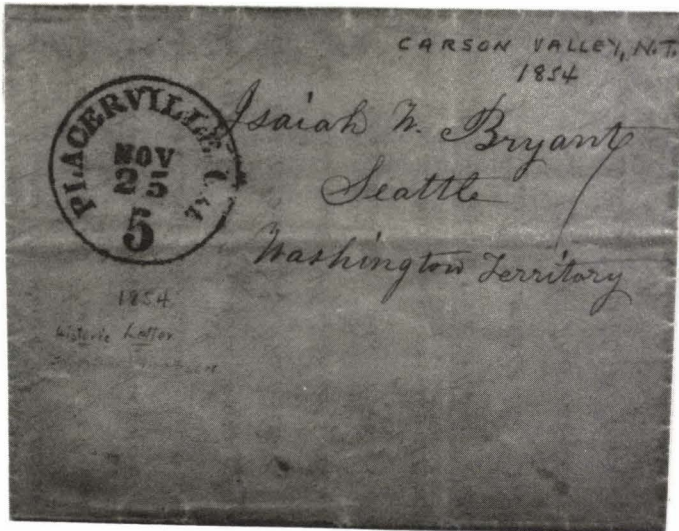 CARSON VALLEY, N.T.
1854
PLACERVILLE, Cal
NOV
25
5
Isaiah W. Bryant
Seattle
Washington Territory
1854
Historic Letter